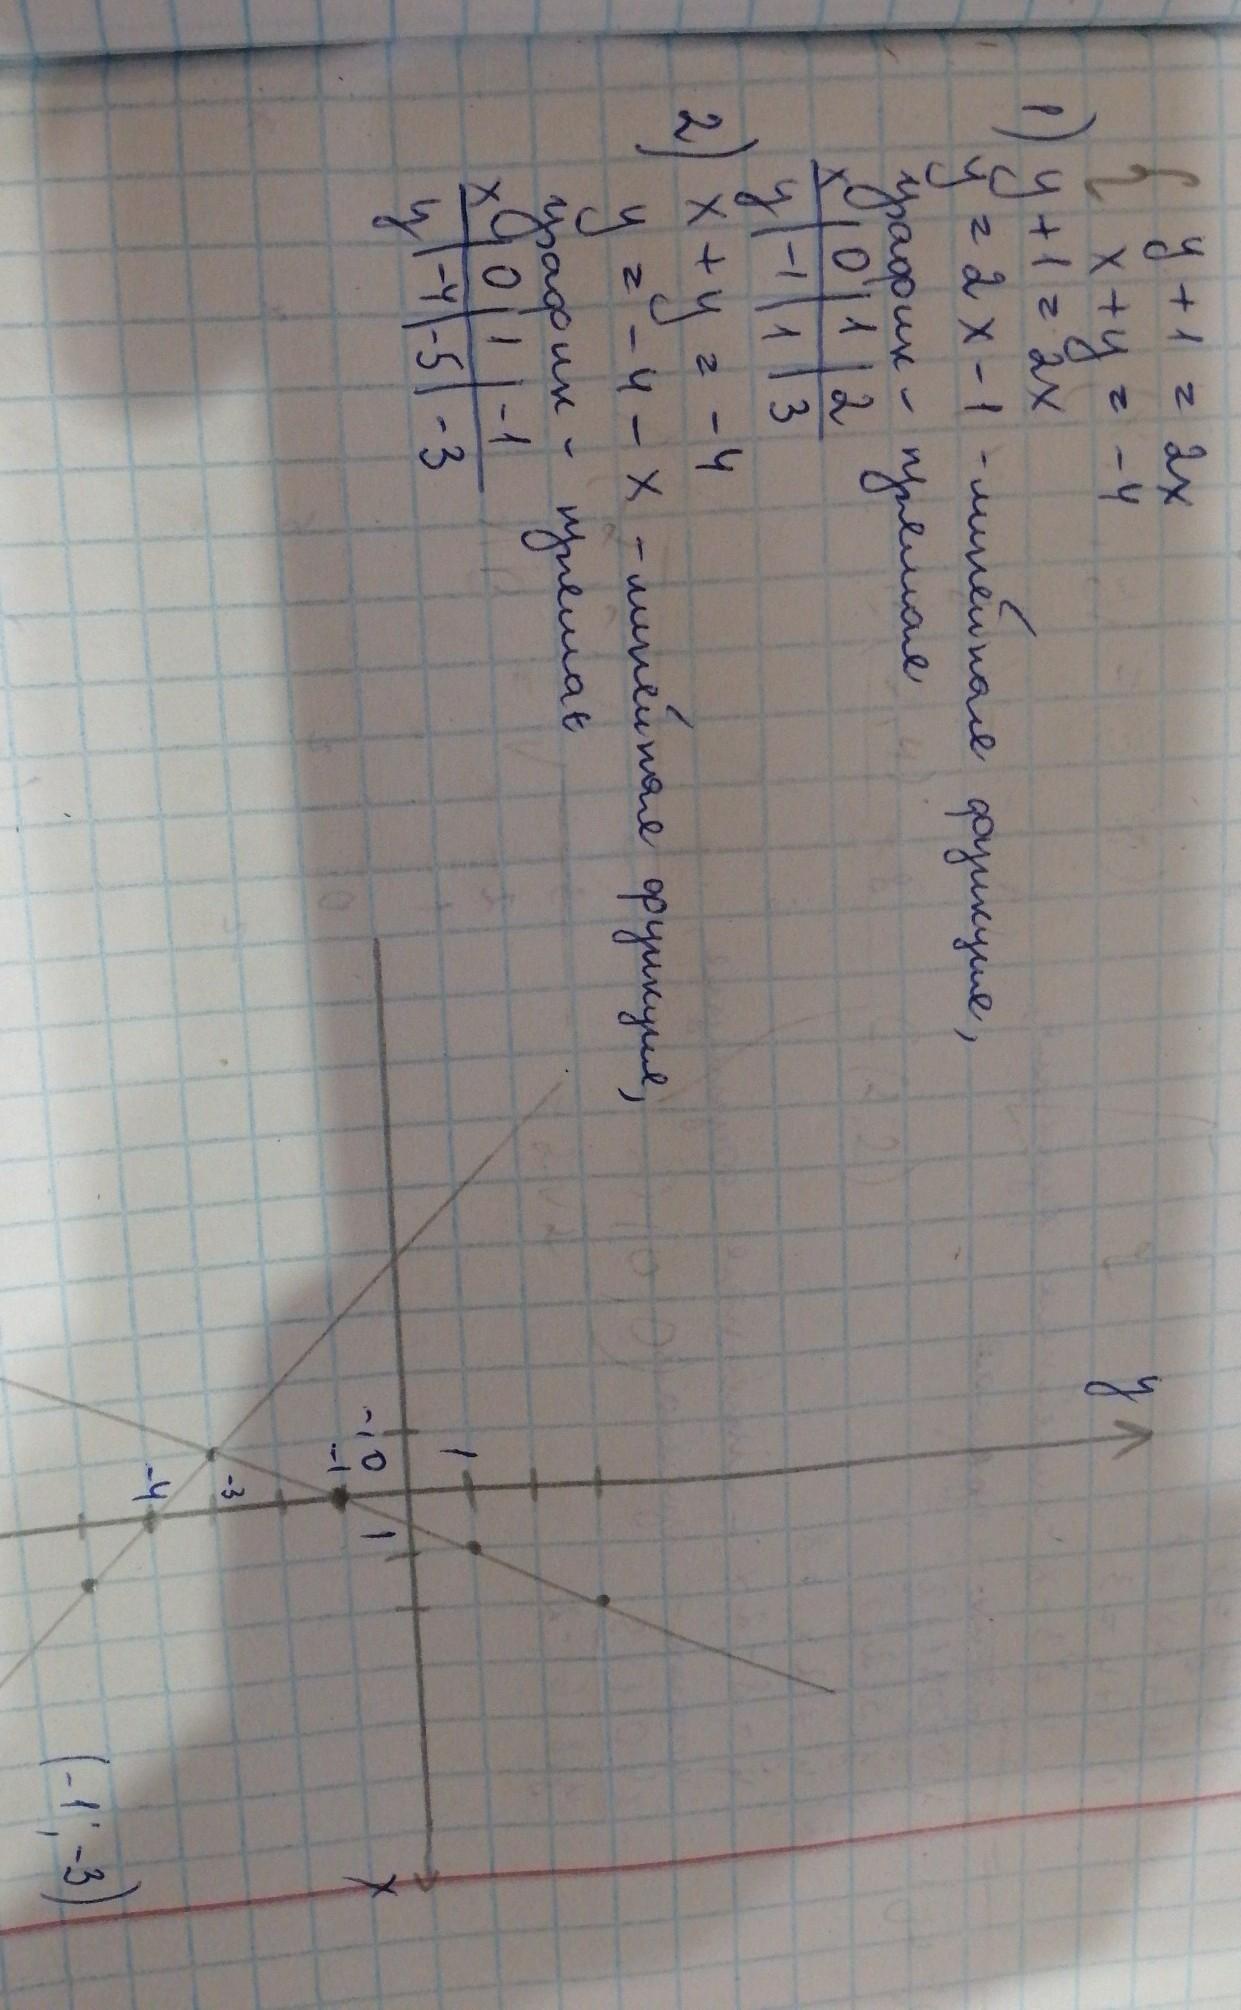 { y + 1 = 2x
x + y = -4
1) y + 1 = 2x
y = 2x - 1 - линейная функция,
график - прямая
x | 0 | 1 | 2
y | -1 | 1 | 3
2) x + y = -4
y = -4 - x - линейная функция,
график - прямая
x | 0 | 1 | -1
y | -4 | -5 | -3
y
1
-1 0 1 x
-1
-3
-4
(-1; -3)